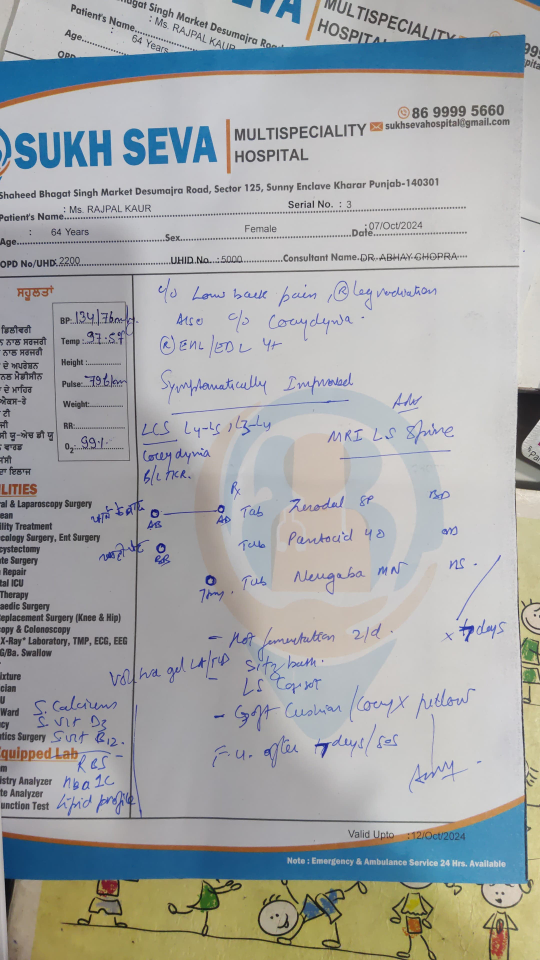 hagat Singh Market Desumajra Road
Patient's Name : Ms. RAJPAL KAUR
Age 64 Years
SEVA
MULTISPECIALITY
HOSPITAL
SUKH SEVA
MULTISPECIALITY
HOSPITAL
86 9999 5660
sukhsevahospital@gmail.com
Shaheed Bhagat Singh Market Desumajra Road, Sector 125, Sunny Enclave Kharar Punjab-140301
Patient's Name : Ms. RAJPAL KAUR Serial No. : 3
Age : 64 Years Sex Female Date :07/Oct/2024
OPD No/UHID: 2200 UHID No. : 5000 Consultant Name DR. ABHAY CHOPRA
ਸਹੂਲਤਾਂ
ਡਿਲੀਵਰੀ
ਨਾਲ ਸਰਜਰੀ
ਨਾਲ ਸਰਜਰੀ
ਦੇ ਅਪਰੇਸ਼ਨ
ਦੇ ਮਾਹਿਰ
ਦਾ ਇਲਾਜ
BP: 134/76
Temp : 97.5°F
Height :
Pulse: 79
Weight:
RR:
O2: 99%
c/o Low back pain, (R) leg radiation
Also c/o Coccydynia
(R) EHL/EDL 4+
Symptomatically Improved
LCS L4-L5, L3-L4
Coccydynia
B/L TKR.
Adv
MRI LS Spine
Rx
Tab Zerodol SP BD
Tab Pantocid 40 OD
Tab Neugaba NS
x 7 days
- Hot fomentation 2/d.
Sitz bath
LS Corset
Volitra gel LA
- Soft Cushion / Coccyx pillow
F.U. after 7 days / SOS
S. Calcium
S. Vit D3
S. Vit B12
RBS
HbA1C
Lipid profile
ILITIES
ral & Laparoscopy Surgery
ean
ility Treatment
ecology Surgery, Ent Surgery
cystectomy
te Surgery
Repair
tal ICU
Therapy
aedic Surgery
Replacement Surgery (Knee & Hip)
copy & Colonoscopy
X-Ray* Laboratory, TMP, ECG, EEG
G/Ba. Swallow
ixture
ician
U
Ward
ncy
tics Surgery
Equipped Lab
m
istry Analyzer
te Analyzer
unction Test
Valid Upto :12/Oct/2024
Note : Emergency & Ambulance Service 24 Hrs. Available